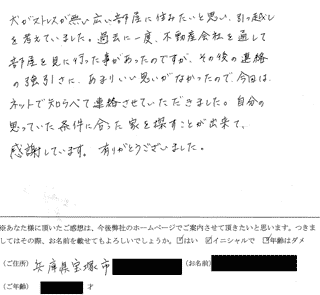 犬がストレスが無い広い部屋に住みたいと思い、引っ越し
を考えていました。過去に一度、不動産会社を通して
部屋を見に行った事があったのですが、その後の連絡
の強引さに、あまりいい思いがなかったので、今回は、
ネットで知らべて連絡させていただきました。自分の
思っていた条件に合った家を探すことが出来て、
感謝しています。有りがとうございました。
※あなた様に頂いたご感想は、今後弊社のホームページでご案内させて頂きたいと思います。つきま
してはその際、お名前を載せてもよろしいでしょうか。☑はい ☑イニシャルで ☑年齢はダメ
(ご住所) 兵庫県宝塚市 (お名前)
(ご年齢) 才